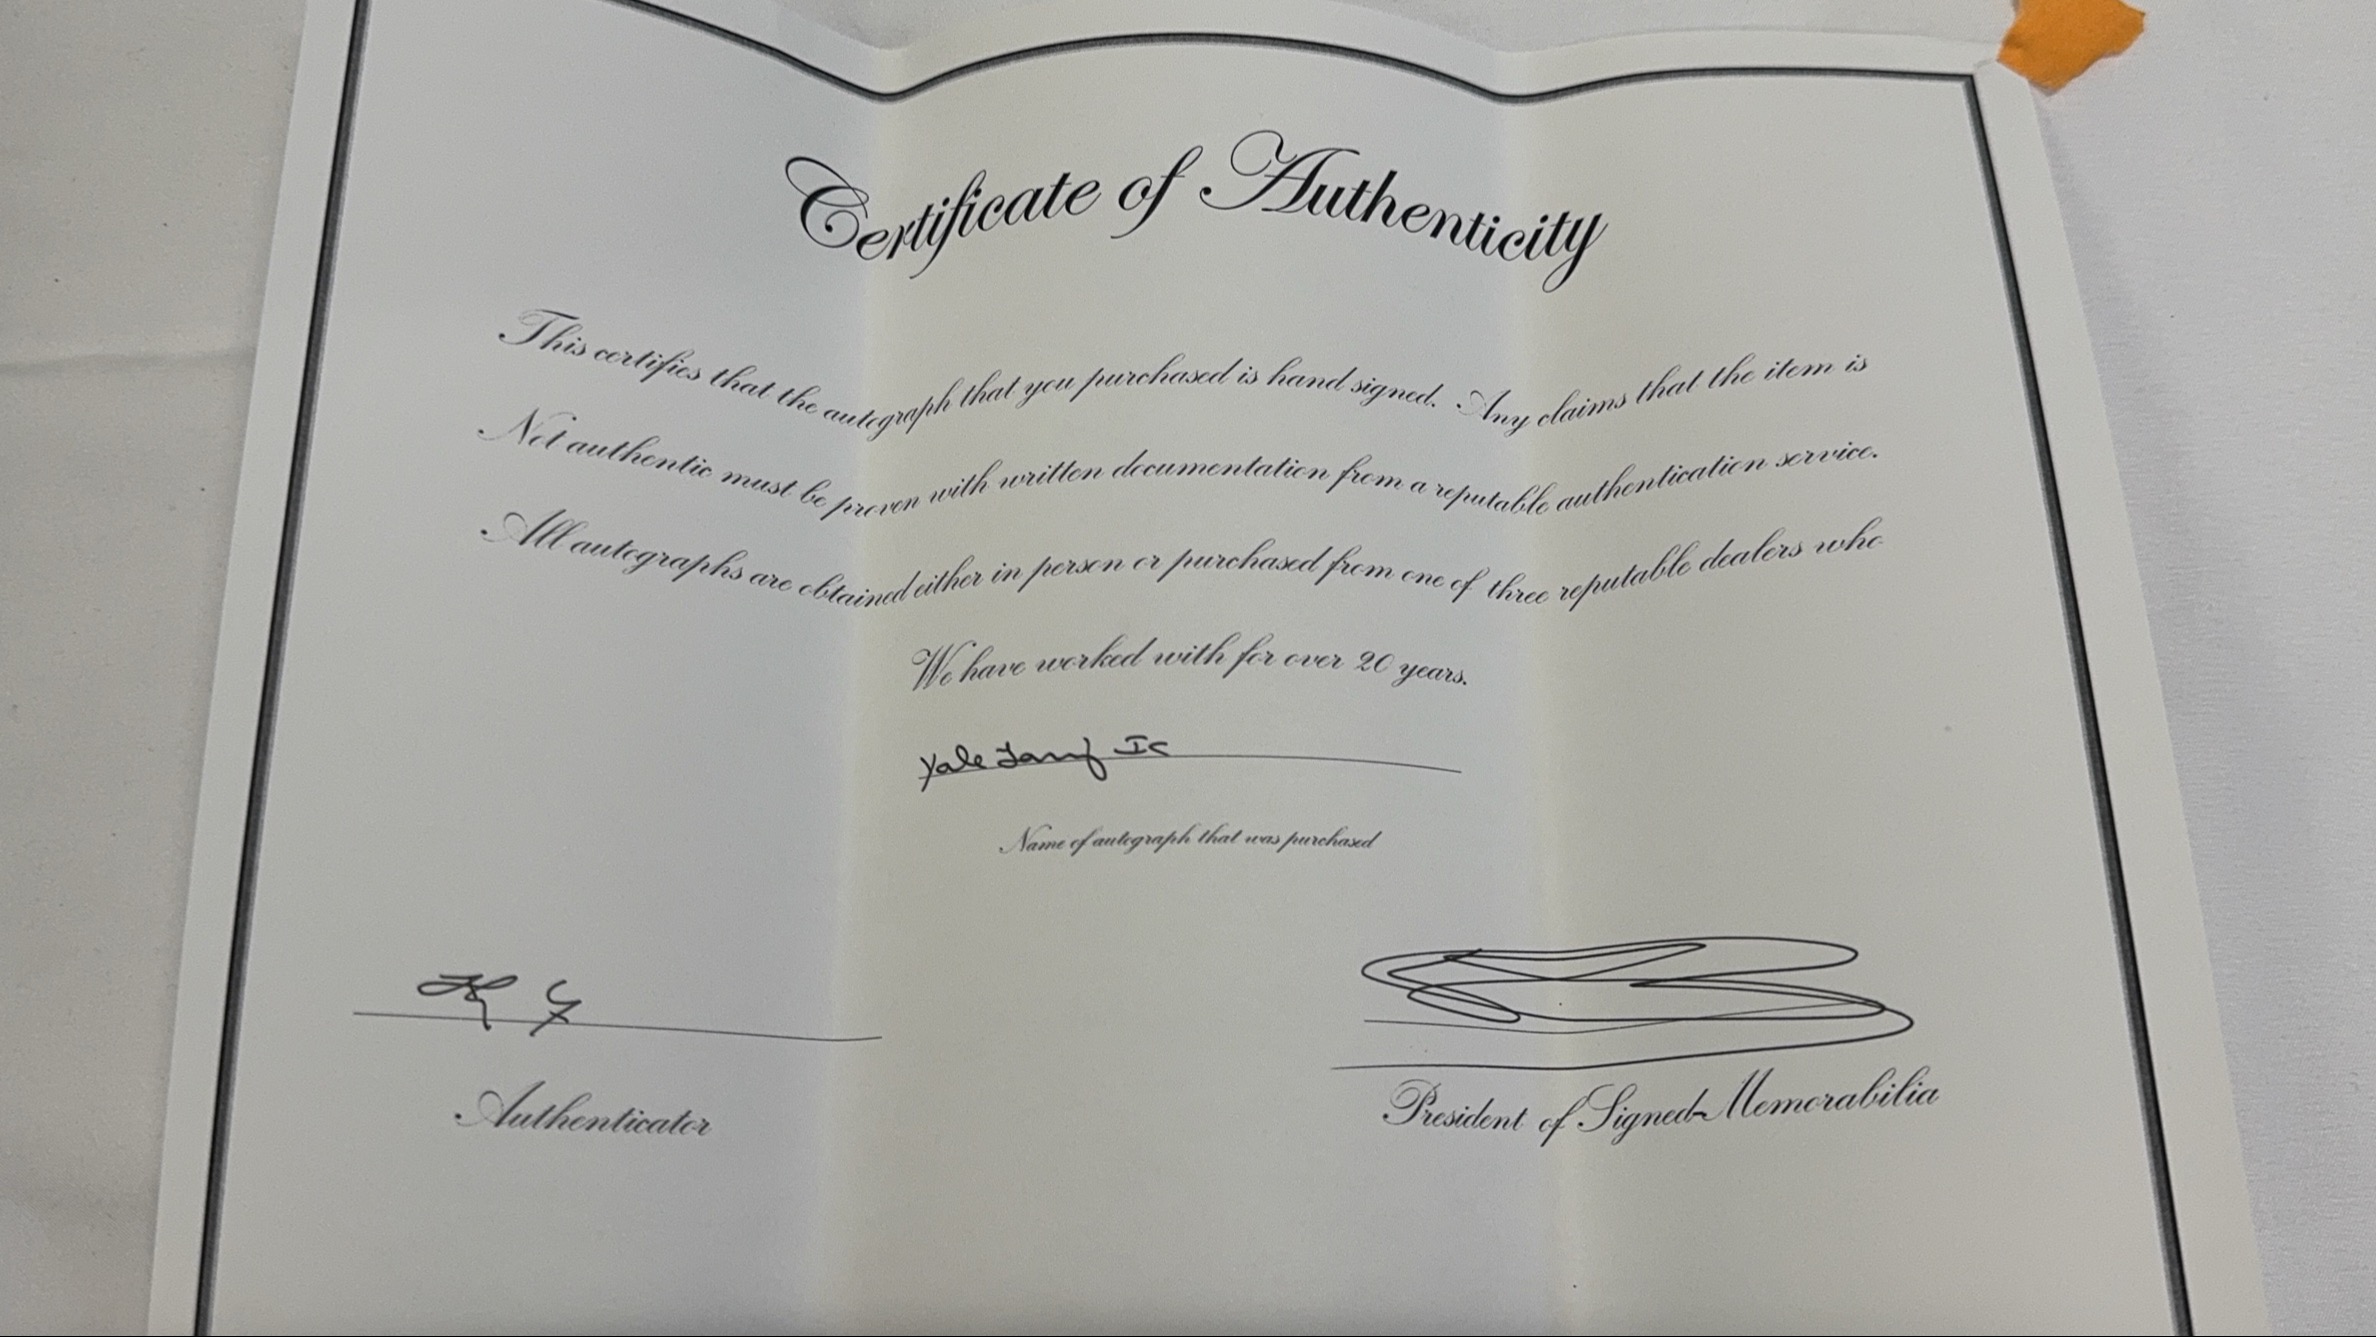 Certificate of Authenticity
This certifies that the autograph that you purchased is hand signed. Any claims that the item is
Not authentic must be proven with written documentation from a reputable authentication service.
All autographs are obtained either in person or purchased from one of three reputable dealers who
We have worked with for over 20 years.
Yale
Name of autograph that was purchased
Authenticator
President of Signed-Memorabilia